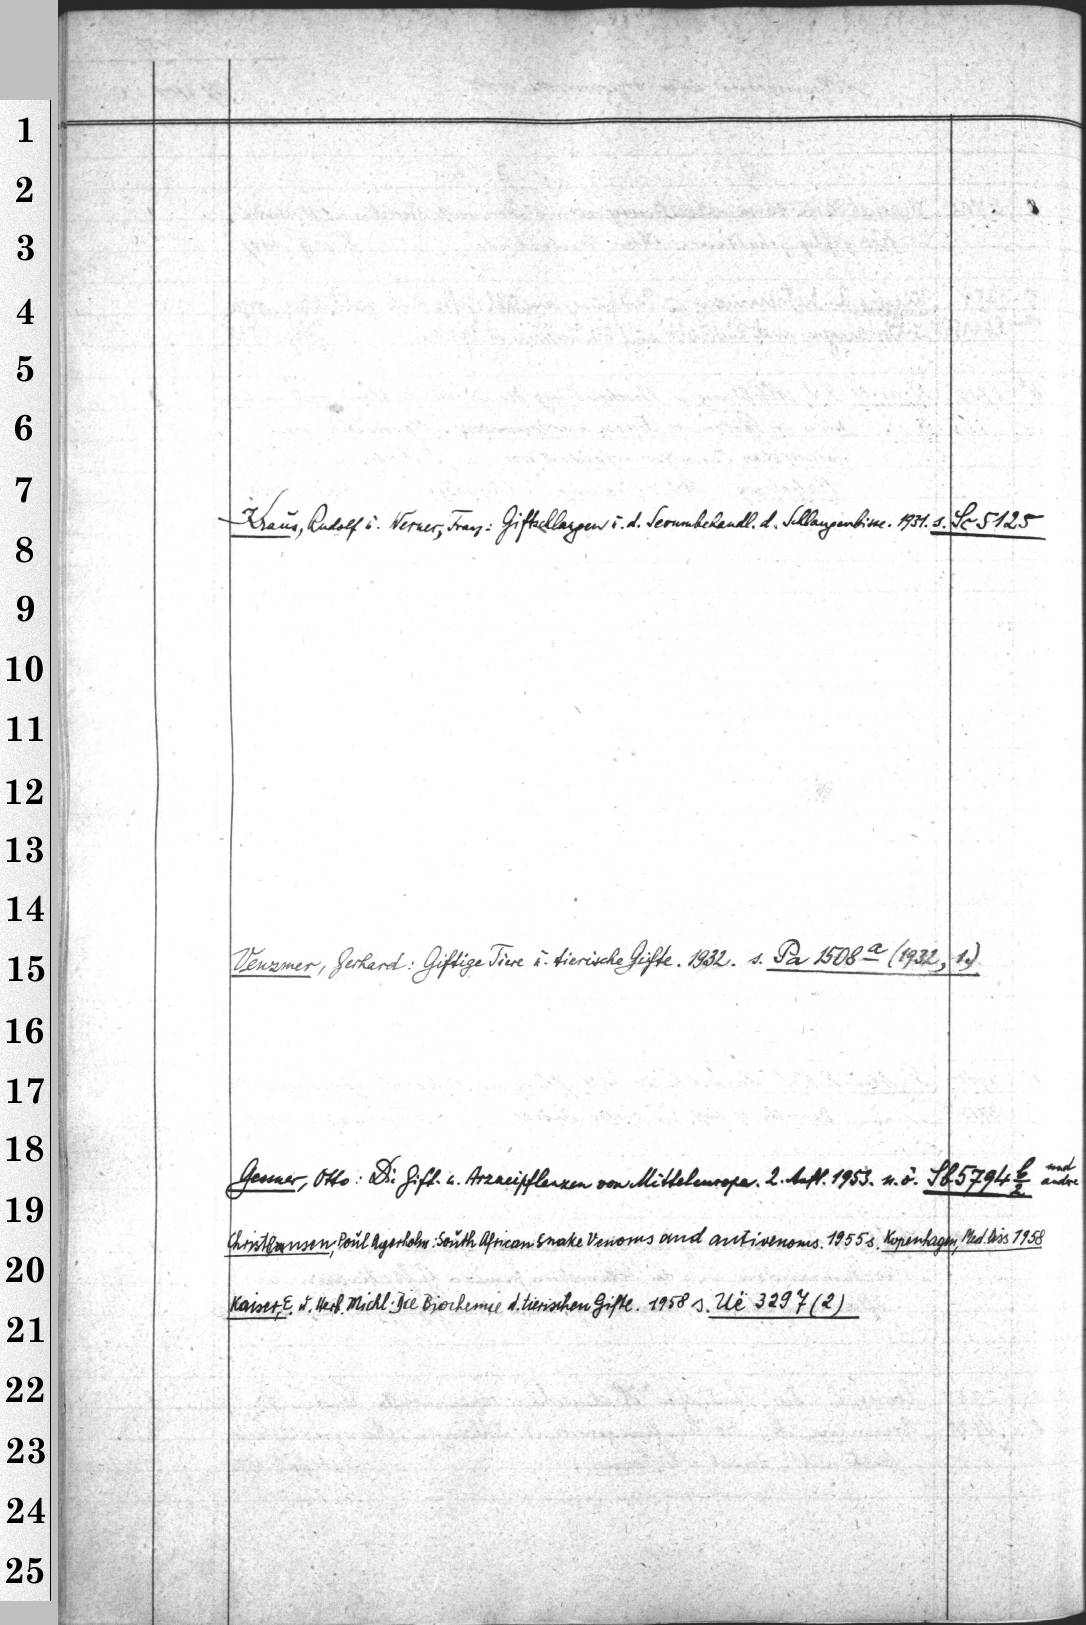 1
2
3
4
5
6
7
Kraus, Rudolf u. Werner, Franz: Giftschlangen u. d. Serumbehandl. d. Schlangenbisse. 1931. s. Sc 5125
8
9
10
11
12
13
14
Venzmer, Gerhard: Giftige Tiere u. tierische Gifte. 1932. s. Pa 1508 a (1932, 1.)
15
16
17
18
Gessner, Otto: Die Gift- u. Arzneipflanzen von Mitteleuropa. 2. Aufl. 1953. u. ö. Sb 5794 b/2 und andre
19
Christensen, Poul Agerholm: South African Snake Venoms and antivenoms. 1955 s. Kopenhagen, Med. Diss 1958
20
Kaiser, E. u. Herb. Michl: Die Biochemie d. tierischen Gifte. 1958 s. Ue 3297 (2)
21
22
23
24
25